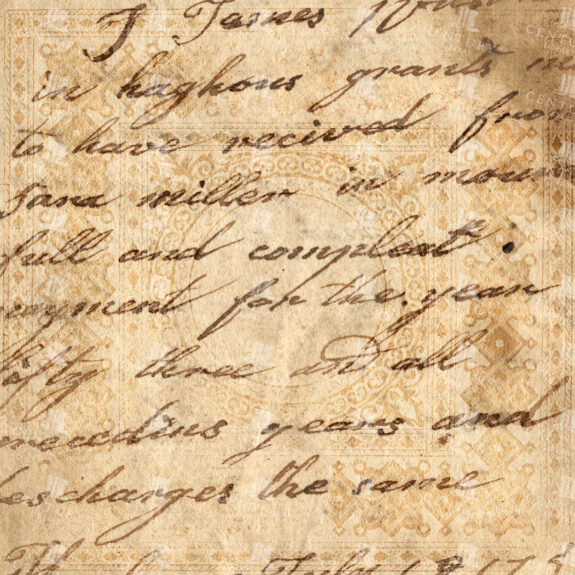 I James
in haghous grants
to have recived from
Jana miller in
full and compleat.
payment for the year
fifty three and all
preceedins years and
descharges the same